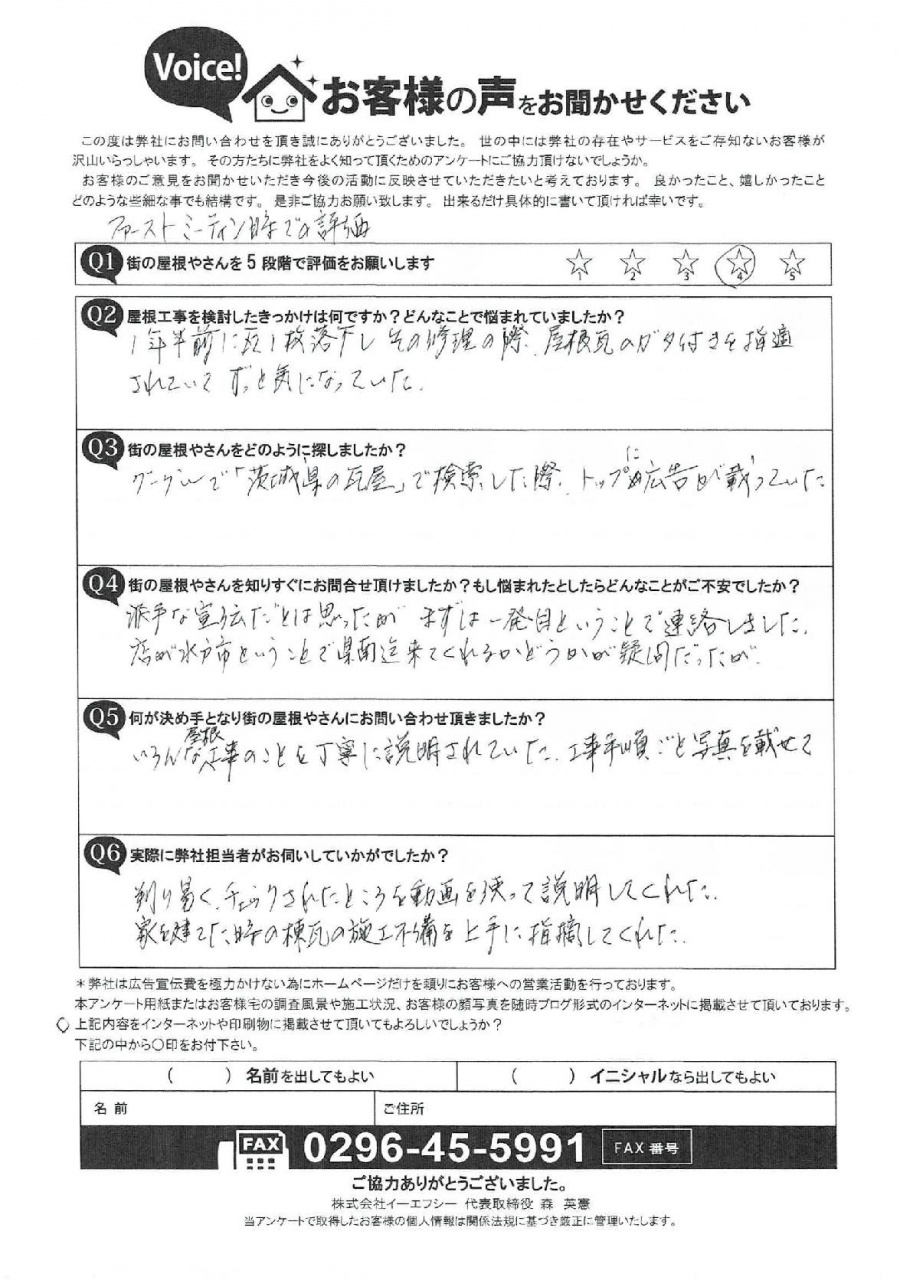 Voice!
お客様の声をお聞かせください
この度は弊社にお問い合わせを頂き誠にありがとうございました。 世の中には弊社の存在やサービスをご存知ないお客様が
沢山いらっしゃいます。 その方たちに弊社をよく知って頂くためのアンケートにご協力頂けないでしょうか。
お客様のご意見をお聞かせいただき今後の活動に反映させていただきたいと考えております。 良かったこと、嬉しかったこと
どのような些細な事でも結構です。 是非ご協力お願い致します。 出来るだけ具体的に書いて頂ければ幸いです。
ファーストミーティング時での評価
Q1 街の屋根やさんを5段階で評価をお願いします 1 2 3 4 5
Q2 屋根工事を検討したきっかけは何ですか?どんなことで悩まれていましたか?
1年半前に瓦1枚落下し その修理の際、屋根瓦のガタ付きを指適
されていて ずっと気になっていた。
Q3 街の屋根やさんをどのように探しましたか?
グーグルで「茨城県の瓦屋」で検索した際、トップに広告が載っていた
Q4 街の屋根やさんを知りすぐにお問合せ頂けましたか?もし悩まれたとしたらどんなことがご不安でしたか?
派手な宣伝だとは思ったが まずは一発目ということで連絡しました。
店が水戸市ということで県南迄来てくれるかどうかが疑問だったが。
Q5 何が決め手となり街の屋根やさんにお問い合わせ頂きましたか?
いろんな屋根工事のことを丁寧に説明されていた。工事手順ごと写真を載せて
Q6 実際に弊社担当者がお伺いしていかがでしたか?
判り易く、チェックされたところを動画を使って説明してくれた。
家を建てた時の棟瓦の施工不備を上手に指摘してくれた。
*弊社は広告宣伝費を極力かけない為にホームページだけを頼りにお客様への営業活動を行っております。
本アンケート用紙またはお客様宅の調査風景や施工状況、お客様の顔写真を随時ブログ形式のインターネットに掲載させて頂いております。
上記内容をインターネットや印刷物に掲載させて頂いてもよろしいでしょうか?
下記の中から〇印をお付下さい。
( ) 名前を出してもよい ( ) イニシャルなら出してもよい
名前 ご住所
FAX 0296-45-5991 FAX番号
ご協力ありがとうございました。
株式会社イーエフシー 代表取締役 森 英憲
当アンケートで取得したお客様の個人情報は関係法規に基づき厳正に管理いたします。